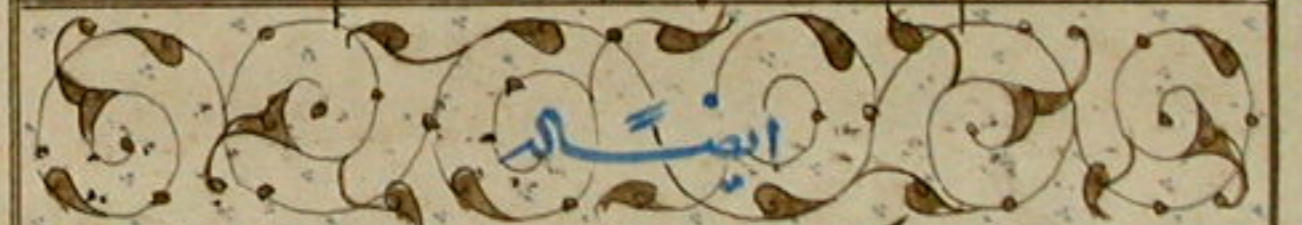 ایضاً له